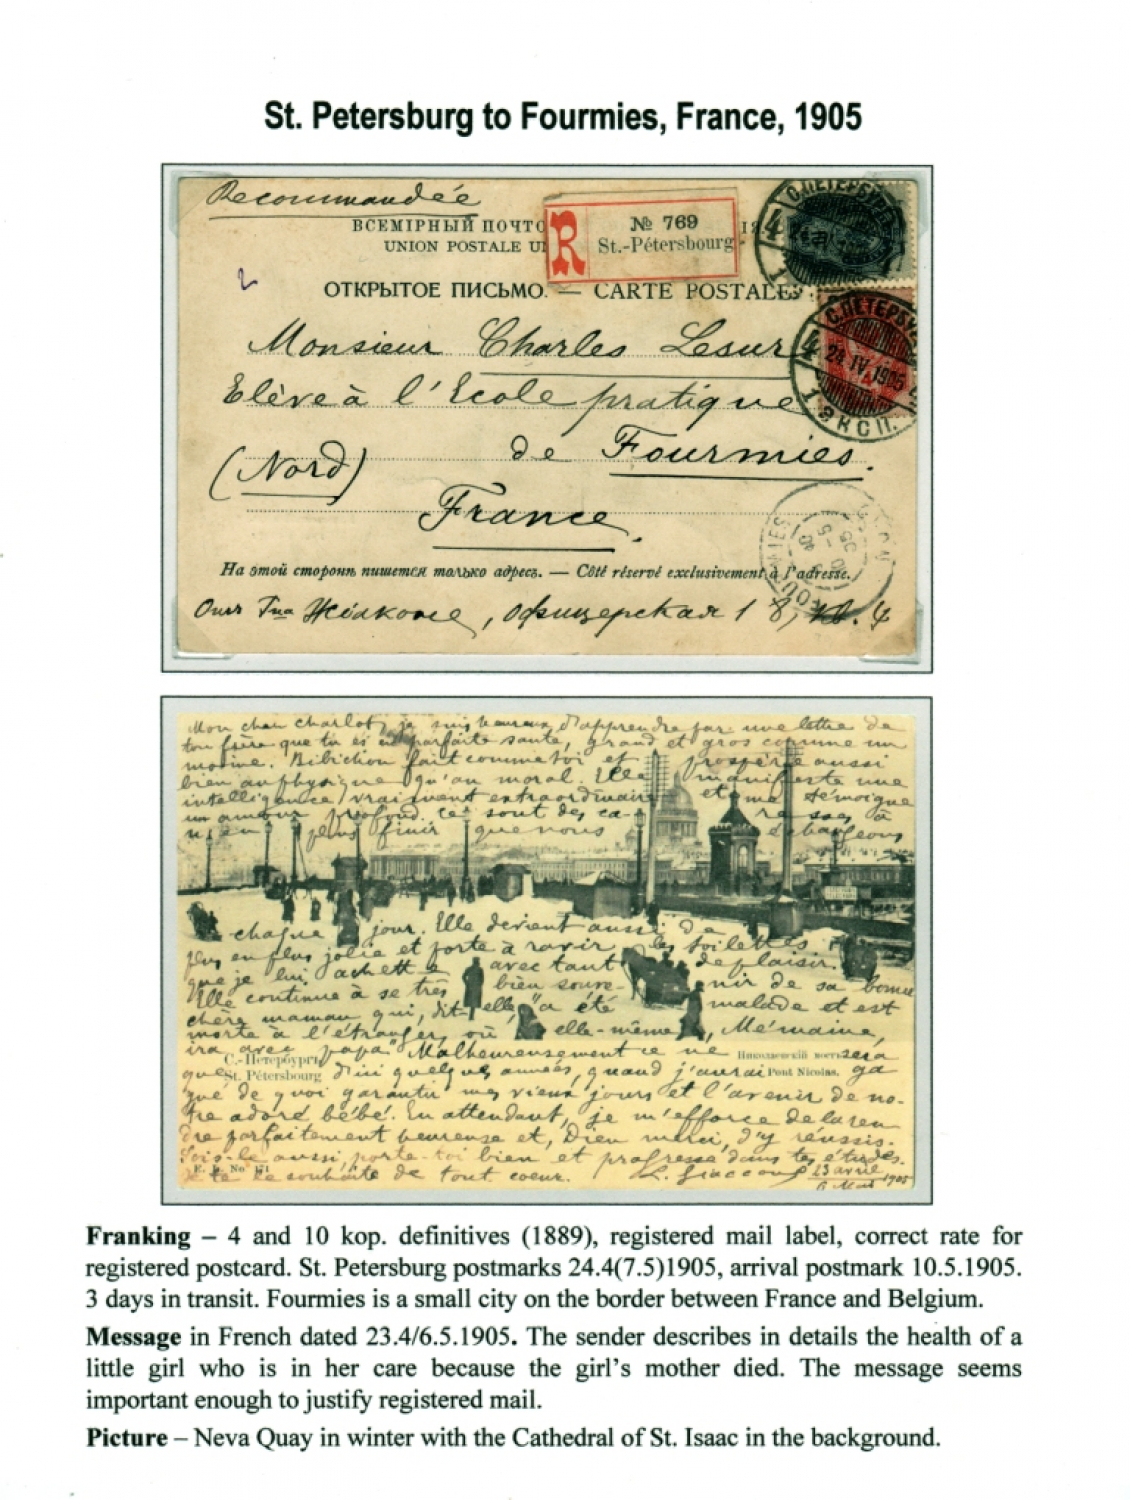 St. Petersburg to Fourmies, France, 1905
Recommandée
ВСЕМІРНЫЙ ПОЧТО
UNION POSTALE U
R
№ 769
St.-Pétersbourg
ОТКРЫТОЕ ПИСЬМО. — CARTE POSTALE
С.ПЕТЕРБУ
4
С.ПЕТЕРБУ
24.IV.1905
4
1 ЭКСП.
Monsieur Charles Lesur
Elève à l'Ecole pratique
de Fourmies.
(Nord)
France.
FOURMIES
На этой сторонѣ пишется только адресъ. — Côté réservé exclusivement à l'adresse.
Офицерская 18, кв. 4
Mon cher Charlot, je suis heureux d'apprendre par une lettre de
ton frère que tu es en parfaite santé, grand et gros comme un
moine. Bibichon fait comme toi et prospère aussi
bien au physique qu'au moral. Elle manifeste une
intelligence vraiment extraordinaire et me témoigne
un amour profond. ce sont des ca- resses à
n'en plus finir que nous échangeons
chaque jour. Elle devient aussi de
plus en plus jolie et porte à ravir les toilettes
que je lui achette avec tant de plaisir.
Elle continue à se très bien souve- nir de sa bonne
chère maman qui, dit-elle, "a été malade et est
morte à l'étranger, où elle-même, Mémaine,
ira avec papa". Malheureusement ce ne sera
С.-Петербургъ
Николаевскій мостъ
que d'ici quelques années, quand j'aurai ga
St. Pétersbourg
Pont Nicolas.
gné de quoi garantir mes vieux jours et l'avenir de no-
tre adoré bébé. En attendant, je m'efforce de la ren-
dre parfaitement heureuse et, Dieu merci, j'y réussis.
Sois-le aussi, porte-toi bien et progresse dans tes études.
No. 171
Je te le souhaite de tout coeur. L. Giaccone 23 avril
6 Mai 1905
Franking – 4 and 10 kop. definitives (1889), registered mail label, correct rate for
registered postcard. St. Petersburg postmarks 24.4(7.5)1905, arrival postmark 10.5.1905.
3 days in transit. Fourmies is a small city on the border between France and Belgium.
Message in French dated 23.4/6.5.1905. The sender describes in details the health of a
little girl who is in her care because the girl's mother died. The message seems
important enough to justify registered mail.
Picture – Neva Quay in winter with the Cathedral of St. Isaac in the background.